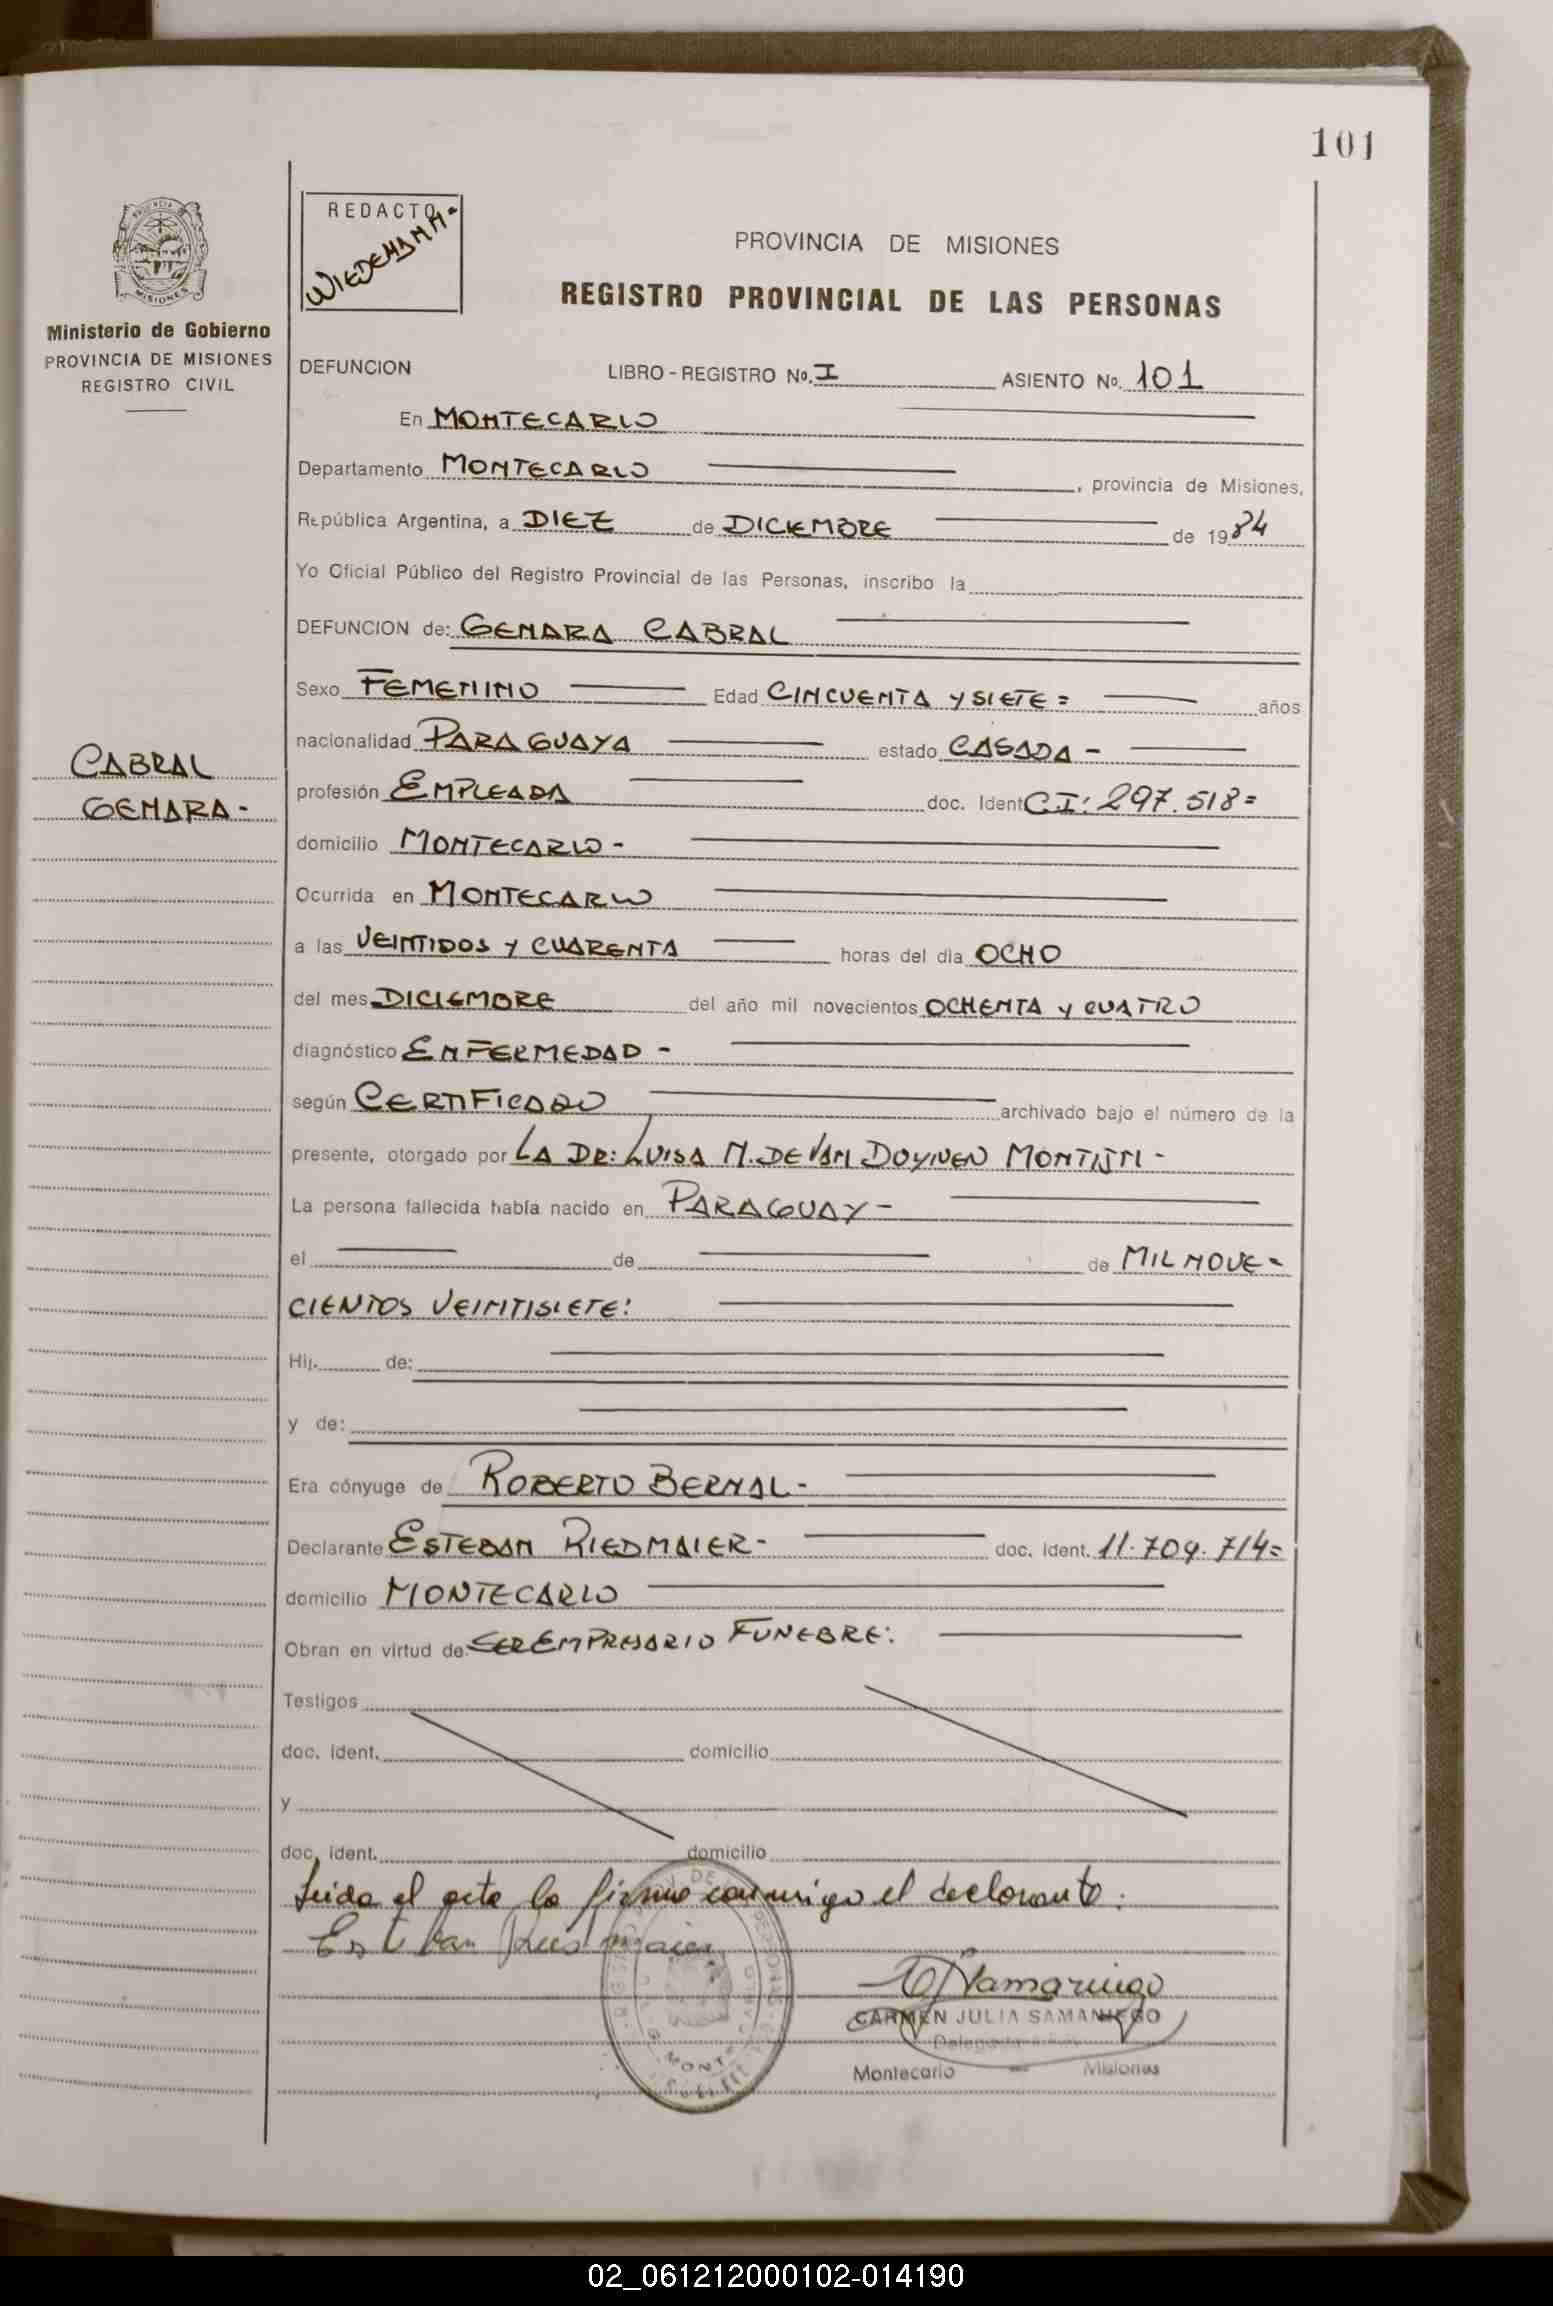 101
REDACTO
WIEDEMANN-
PROVINCIA DE MISIONES
REGISTRO PROVINCIAL DE LAS PERSONAS
PROVINCIA
MISIONES
Ministerio de Gobierno
PROVINCIA DE MISIONES
REGISTRO CIVIL
DEFUNCION LIBRO - REGISTRO No. I ASIENTO No. 101
En MONTECARLO
Departamento MONTECARLO, provincia de Misiones,
República Argentina, a DIEZ de DICIEMBRE de 1984
Yo Oficial Público del Registro Provincial de las Personas, inscribo la
DEFUNCION de: GENARA CABRAL
Sexo FEMENINO Edad CINCUENTA Y SIETE = años
nacionalidad PARAGUAYA estado CASADA -
CABRAL
GENARA -
profesión EMPLEADA doc. Ident C.I: 297.518 =
domicilio MONTECARLO -
Ocurrida en MONTECARLO
a las VEINTIDOS Y CUARENTA horas del día OCHO
del mes DICIEMBRE del año mil novecientos OCHENTA Y CUATRO
diagnóstico ENFERMEDAD -
según CERTIFICADO archivado bajo el número de la
presente, otorgado por LA DR: LUISA M. DE VAN
La persona fallecida había nacido en PARAGUAY -
el de de MIL NOVE =
CIENTOS VEINTISIETE:
Hij. de:
y de:
Era cónyuge de ROBERTO BERNAL -
Declarante ESTEBAN RIEDMAIER - doc. ident. 11.709.714 =
domicilio MONTECARLO
Obran en virtud de: SER EMPRESARIO FUNEBRE:
Testigos
doc. ident. domicilio
y
doc. ident. domicilio
Leida el acta la firma conmigo el declarante.
Esteban
CARMEN JULIA SAMANIEGO
Montecarlo — Misiones
02_061212000102-014190